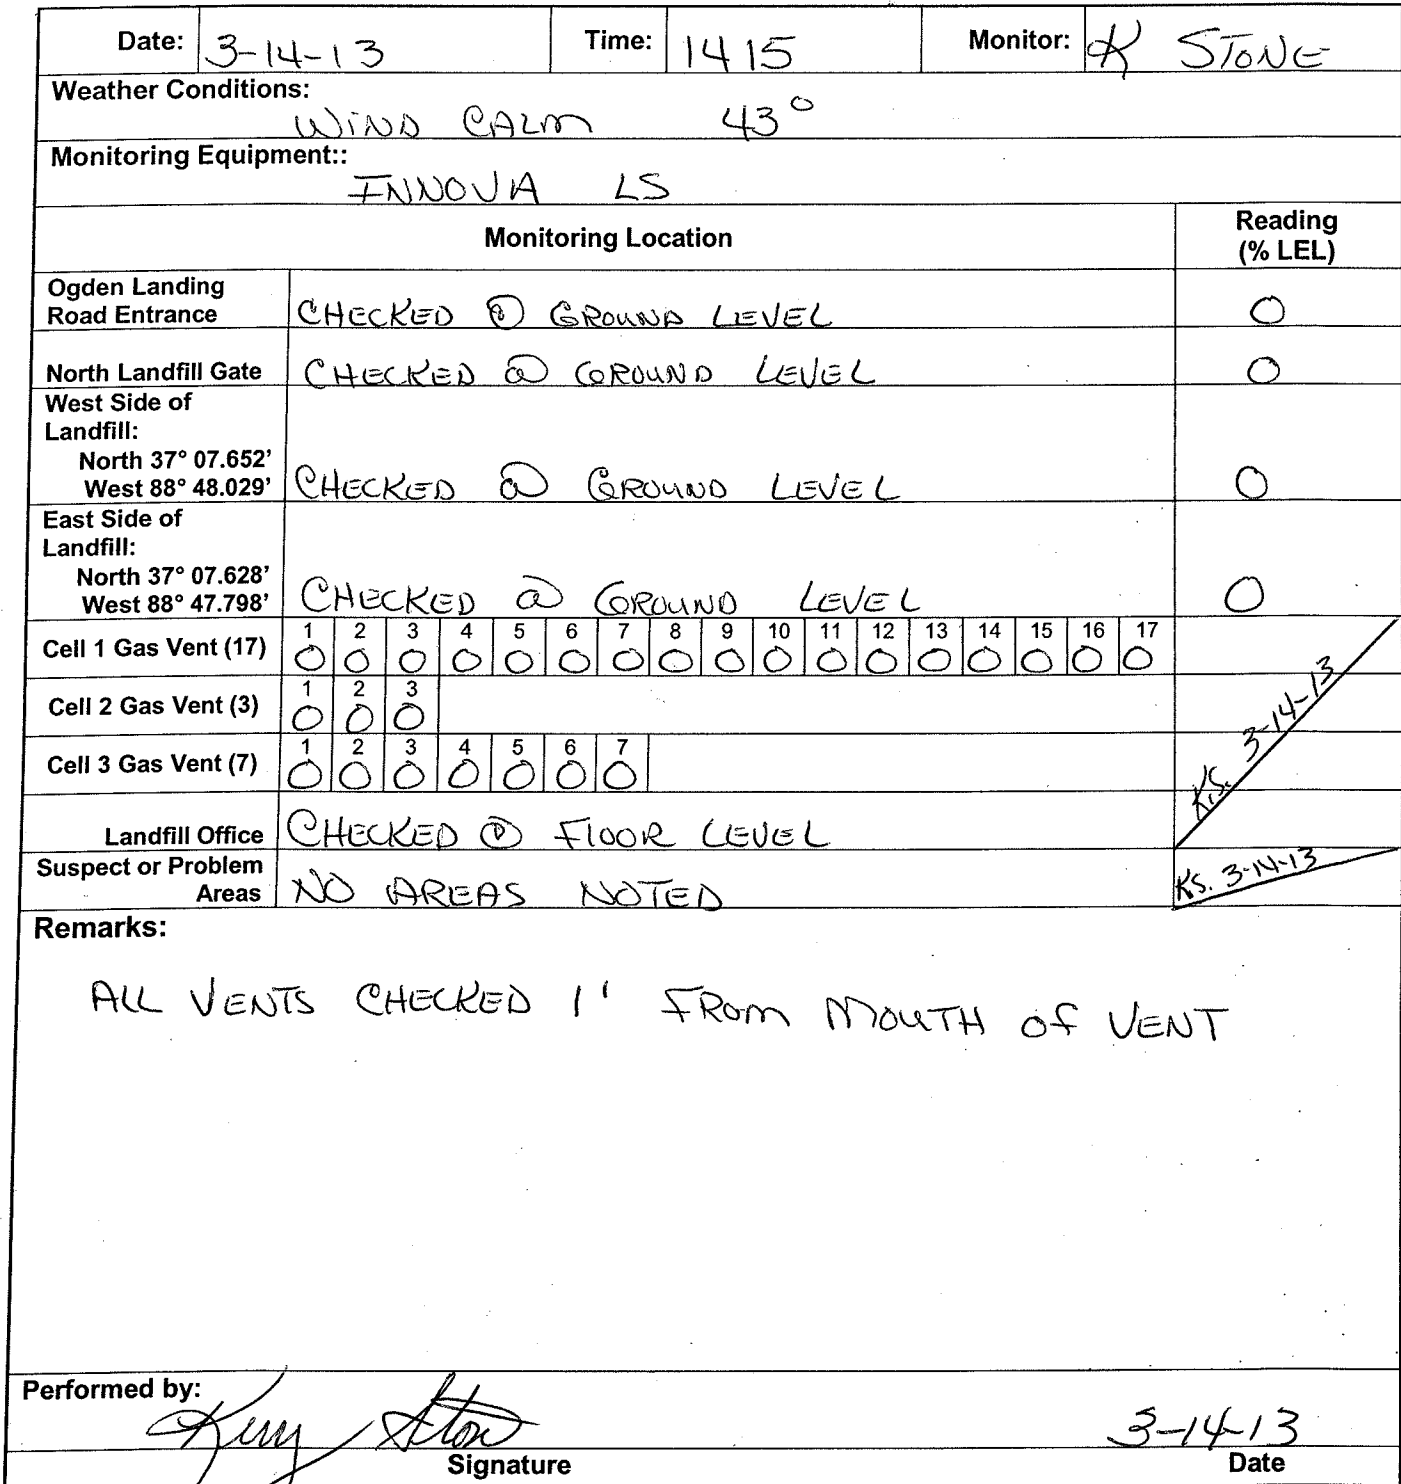 Date: 3-14-13 Time: 1415 Monitor: K STONE
Weather Conditions:
WIND CALM 43°
Monitoring Equipment::
INNOVA LS
Monitoring Location Reading (% LEL)
Ogden Landing
Road Entrance CHECKED @ GROUND LEVEL 0
North Landfill Gate CHECKED @ GROUND LEVEL 0
West Side of
Landfill:
North 37° 07.652'
West 88° 48.029' CHECKED @ GROUND LEVEL 0
East Side of
Landfill:
North 37° 07.628'
West 88° 47.798' CHECKED @ GROUND LEVEL 0
1 2 3 4 5 6 7 8 9 10 11 12 13 14 15 16 17
Cell 1 Gas Vent (17) 0 0 0 0 0 0 0 0 0 0 0 0 0 0 0 0 0
1 2 3
Cell 2 Gas Vent (3) 0 0 0
1 2 3 4 5 6 7
Cell 3 Gas Vent (7) 0 0 0 0 0 0 0
K.S. 3-14-13
Landfill Office CHECKED @ FLOOR LEVEL
Suspect or Problem
Areas NO AREAS NOTED KS. 3-14-13
Remarks:
ALL VENTS CHECKED 1' FROM MOUTH OF VENT
Performed by:
Kerry Stone 3-14-13
Signature Date